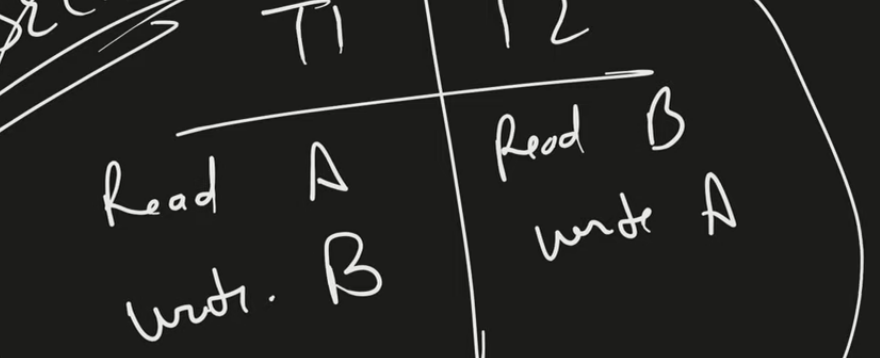 T1 T2
Read A Read B
write. B write A